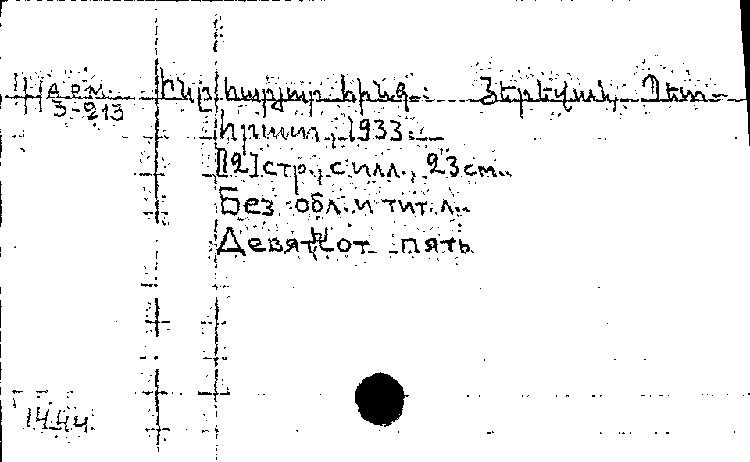 Арм.
3-213
Ինը հարյուր հինգ.: Յերեվան, Պետ-
հրատ, 1933.
[12]стр., с илл., 23см..
Без обл. и тит. л..
Девятьсот пять
1444